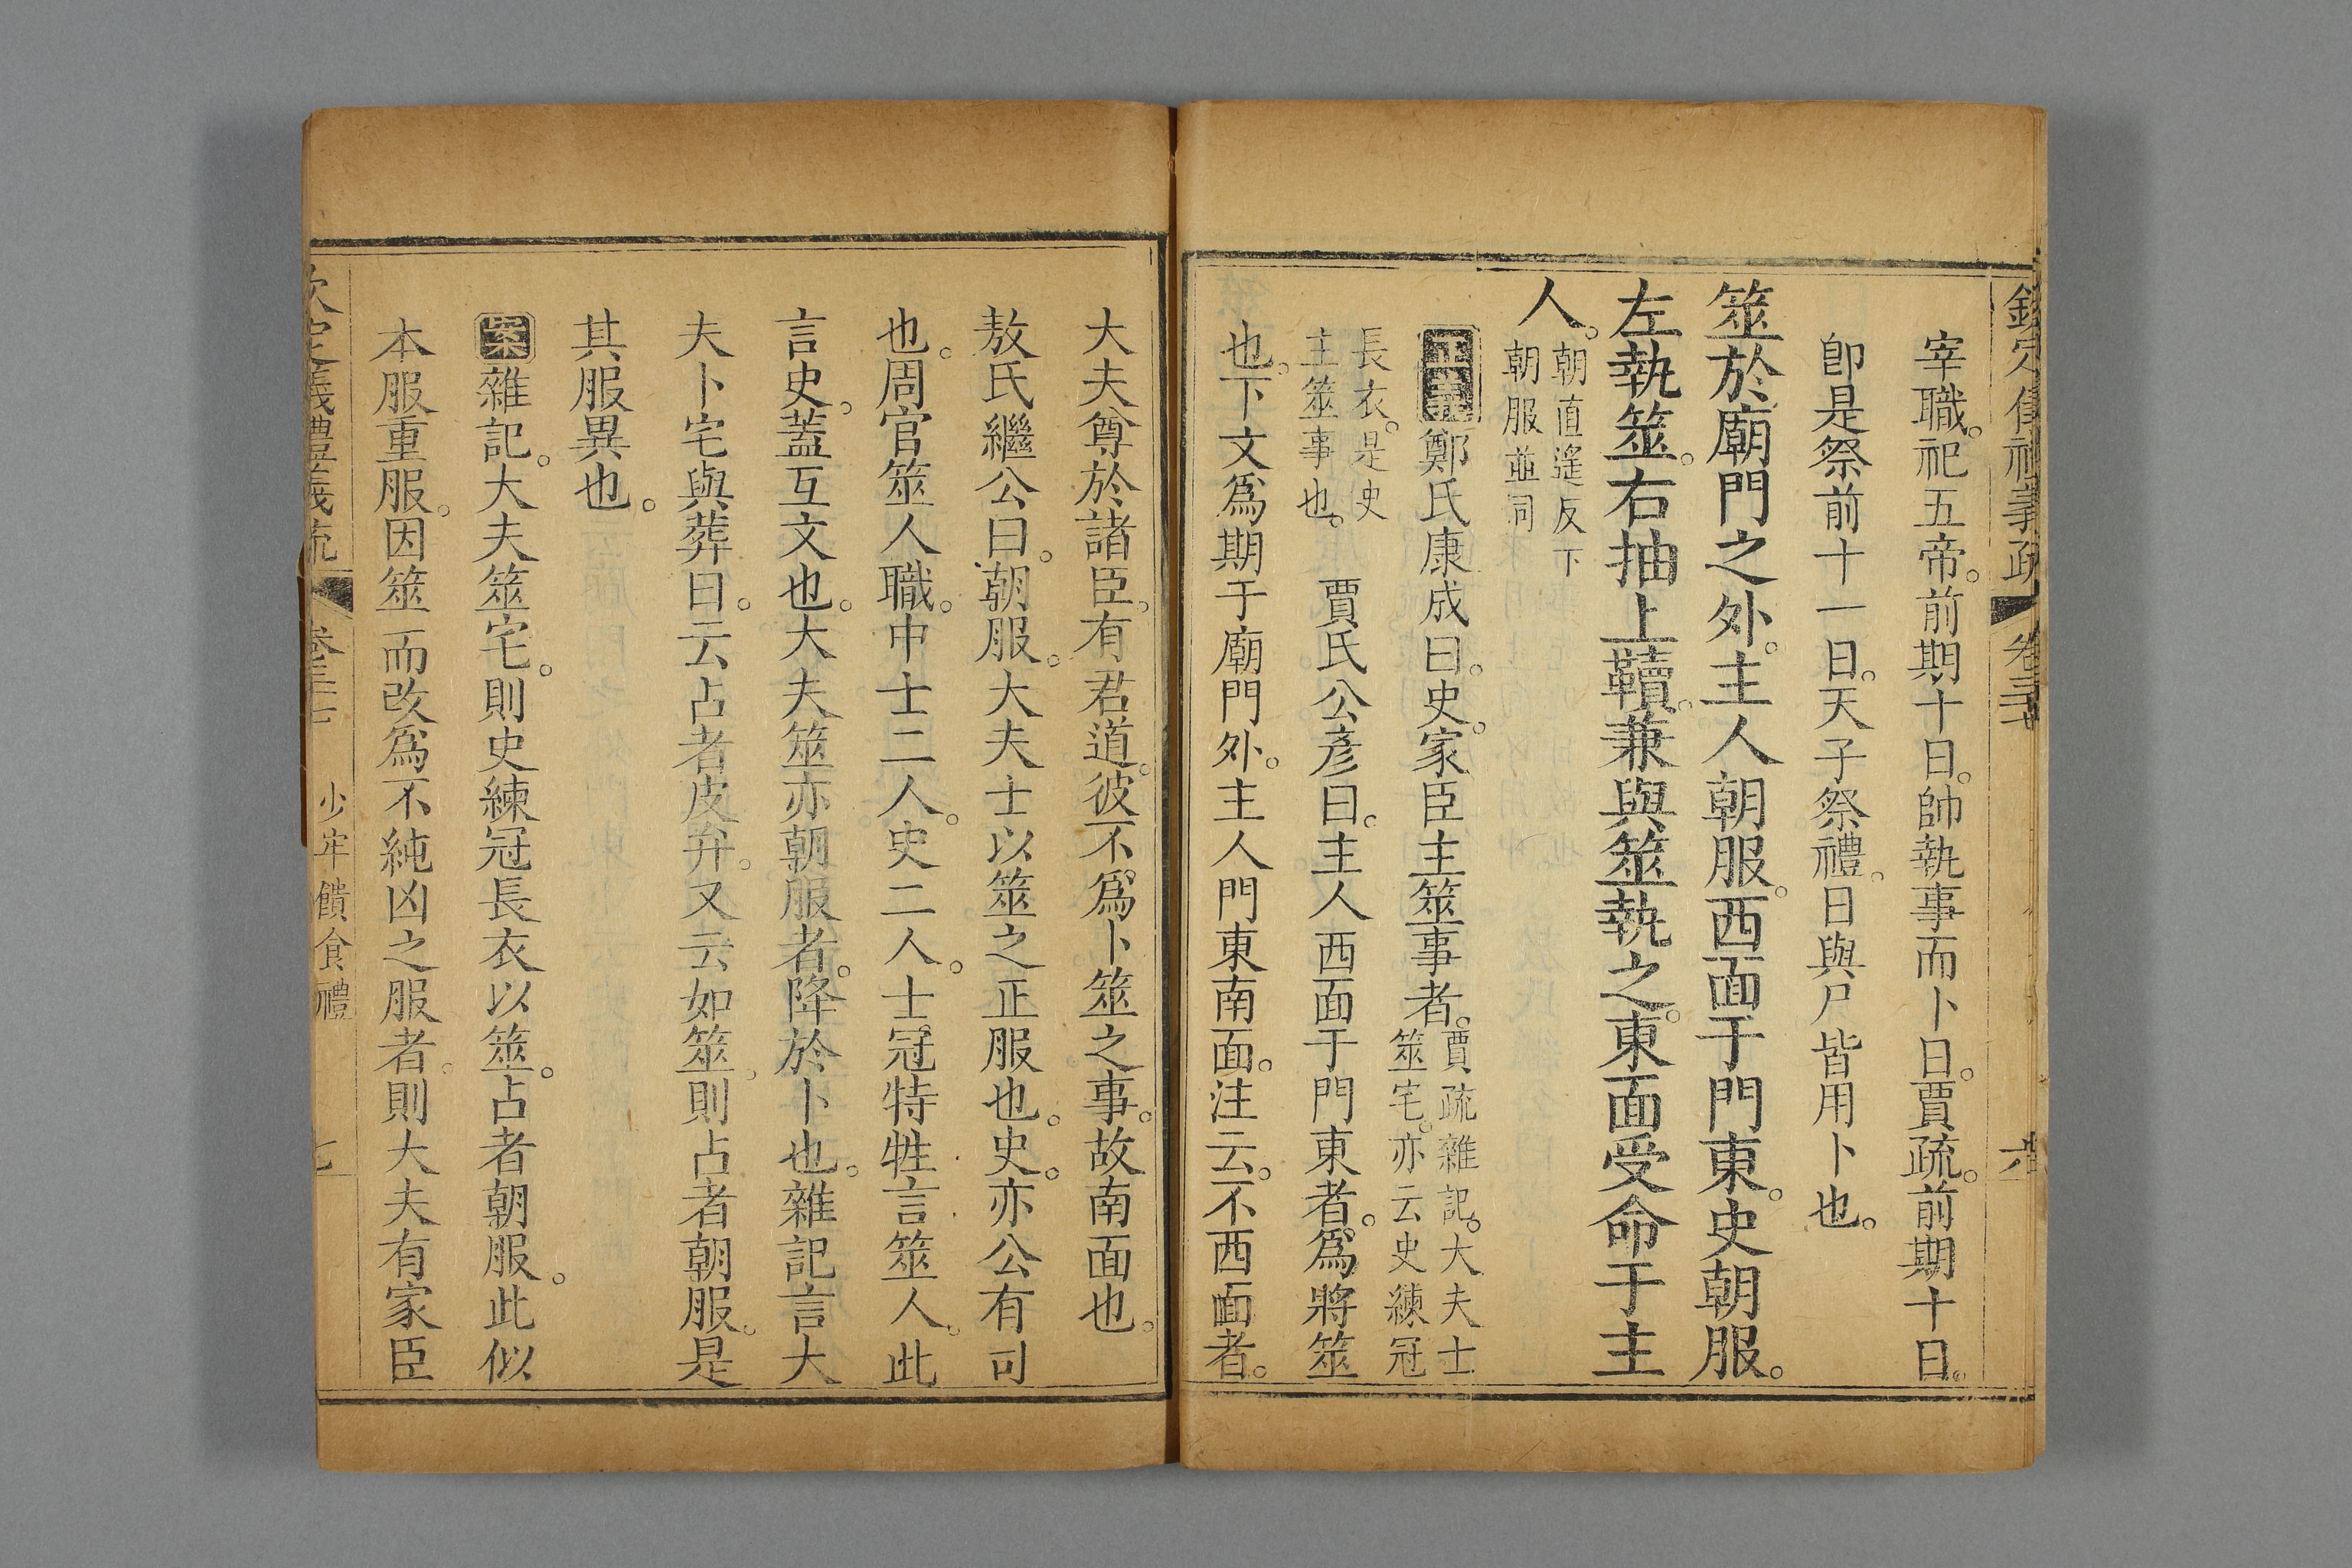 宰職。祀五帝。前期十日。帥執事而卜日。賈疏。前期十日。
卽是祭前十一日。天子祭禮。日與尸皆用卜也。
筮於廟門之外。主人朝服。西面于門東。史朝服。
左執筮。右抽上韇。兼與筮執之。東面受命于主
人。朝直遙反下
朝服並同
正義鄭氏康成曰。史。家臣主筮事者。賈疏雜記。大夫士
筮宅。亦云史練冠
長衣。是史
主筮事也。賈氏公彥曰。主人西面于門東者。爲將筮
也。下文爲期于廟門外。主人門東南面。注云。不西面者。
大夫尊於諸臣。有君道。彼不爲卜筮之事。故南面也。
敖氏繼公曰。朝服。大夫士以筮之正服也。史。亦公有司
也。周官筮人職。中士二人。史二人。士冠特牲言筮人。此
言史。蓋互文也。大夫筮亦朝服者。降於卜也。雜記言大
夫卜宅與葬日。云占者皮弁。又云如筮。則占者朝服。是
其服異也。
案雜記。大夫筮宅。則史練冠長衣以筮。占者朝服。此似
本服重服。因筮而改爲不純凶之服者。則大夫有家臣
少牢饋食禮